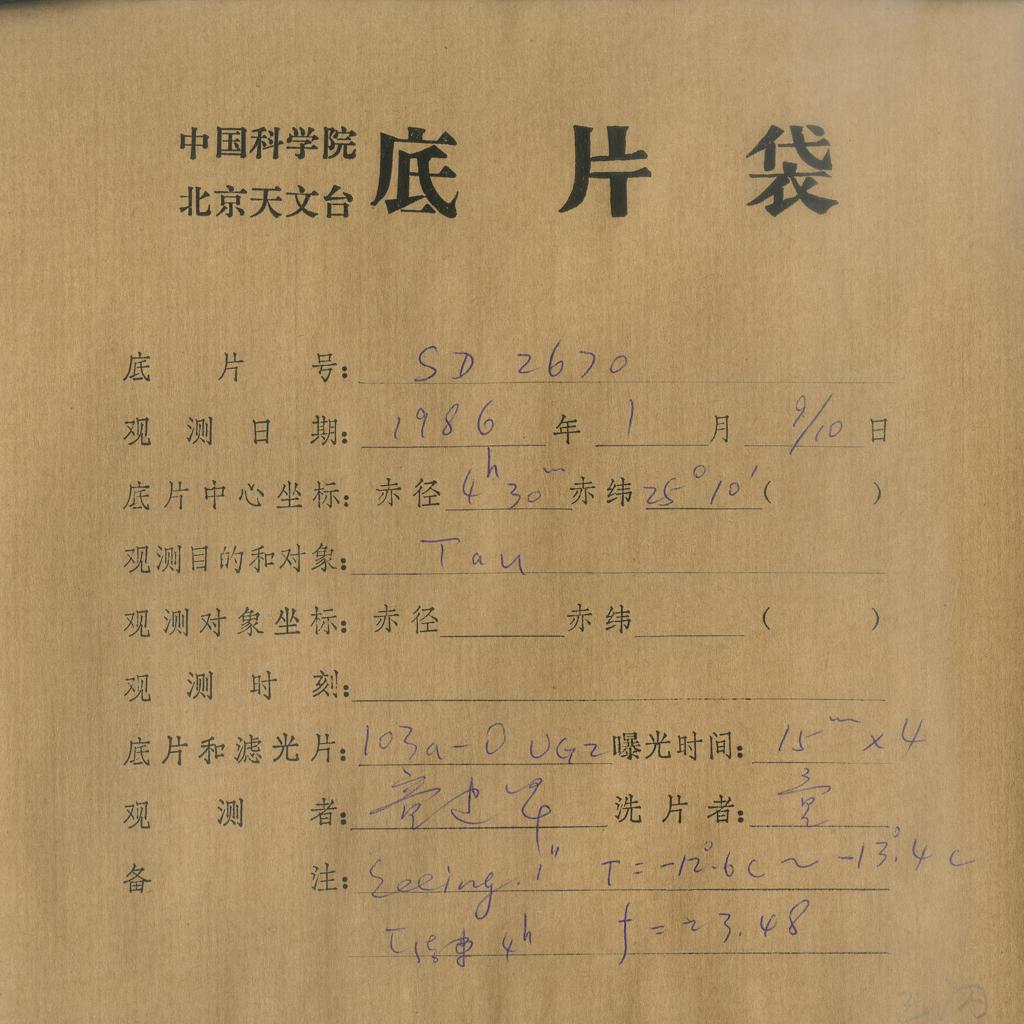 中国科学院
北京天文台
底片袋
底片号: SD 2670
观测日期: 1986 年 1 月 9/10 日
底片中心坐标: 赤径 4h 30m 赤纬 25°10′ ( )
观测目的和对象: Tau
观测对象坐标: 赤径 赤纬 ( )
观测时刻:
底片和滤光片: 103a-O UG2 曝光时间: 15m×4
观测者: 洗片者:
备注: Seeing 1" T=-12°.6C ~ -13°.4C
4h f=23.48